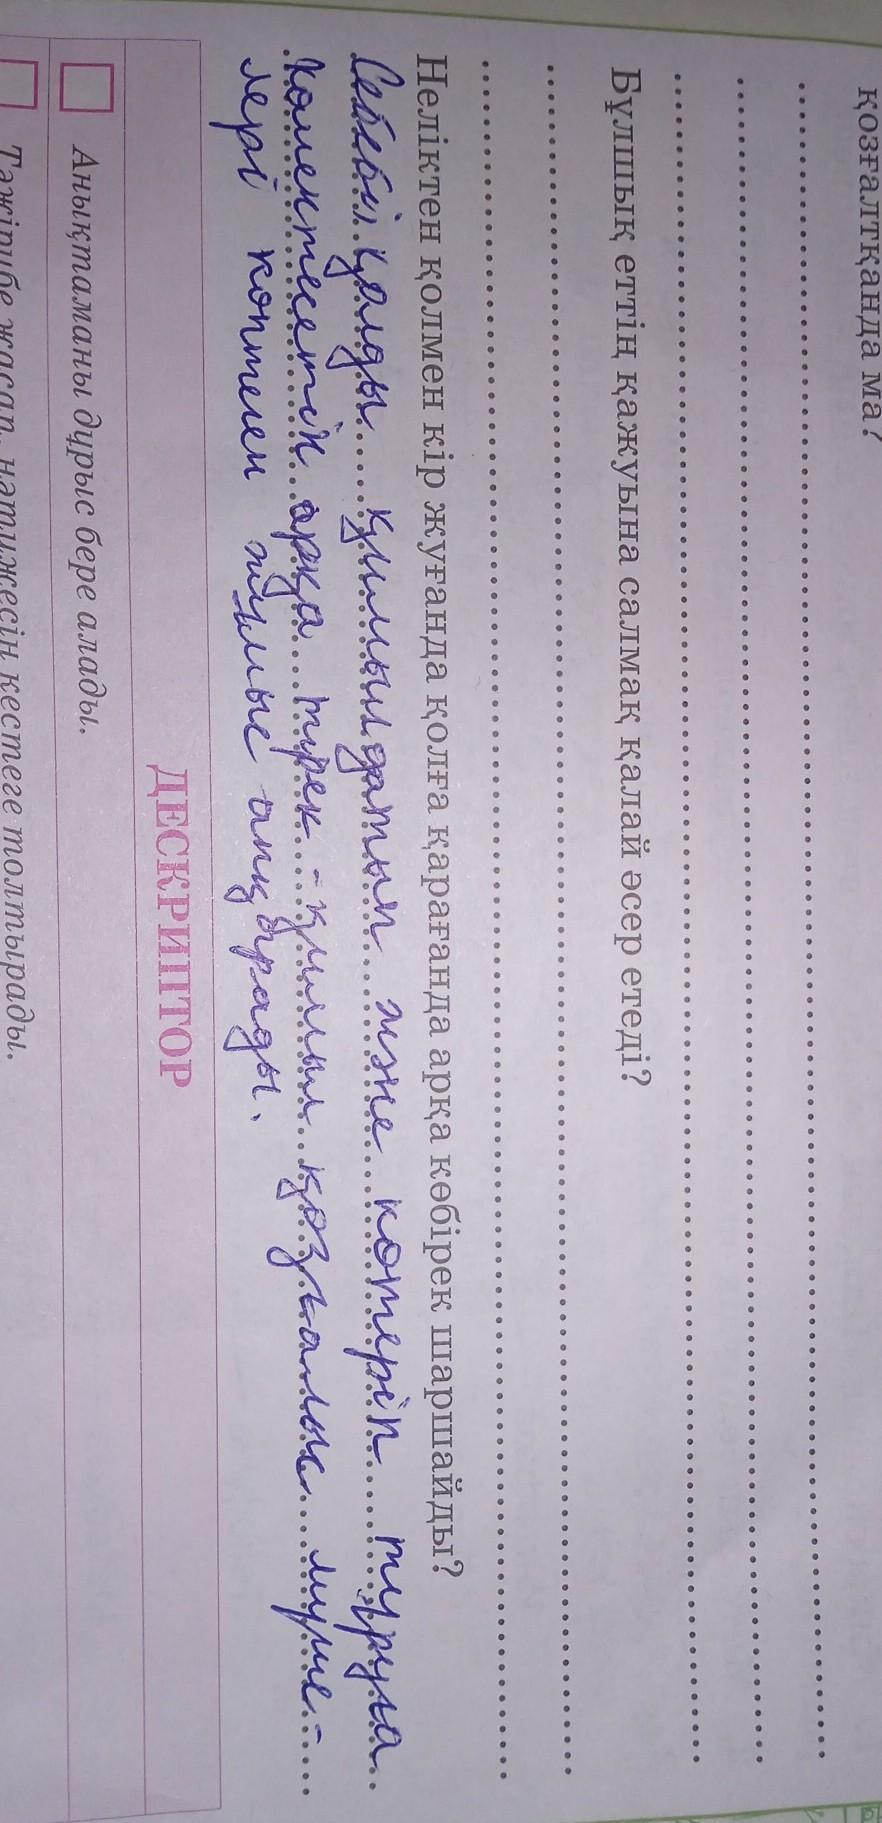 қозғалтқанда ма?
Бұлшық еттің қажуына салмақ қалай әсер етеді?
Неліктен қолмен кір жуғанда қолға қарағанда арқа көбірек шаршайды?
Себебі, қолды қимылдатып және көтеріп тұруға
көмектесетін арқа тірек-қимыл қозғалыс мүше-
лері көптеген жұмыс атқарады.
ДЕСКРИПТОР
Анықтаманы дұрыс бере алады.
Тәжірибе жасап, нәтижесін кестеге толтырады.